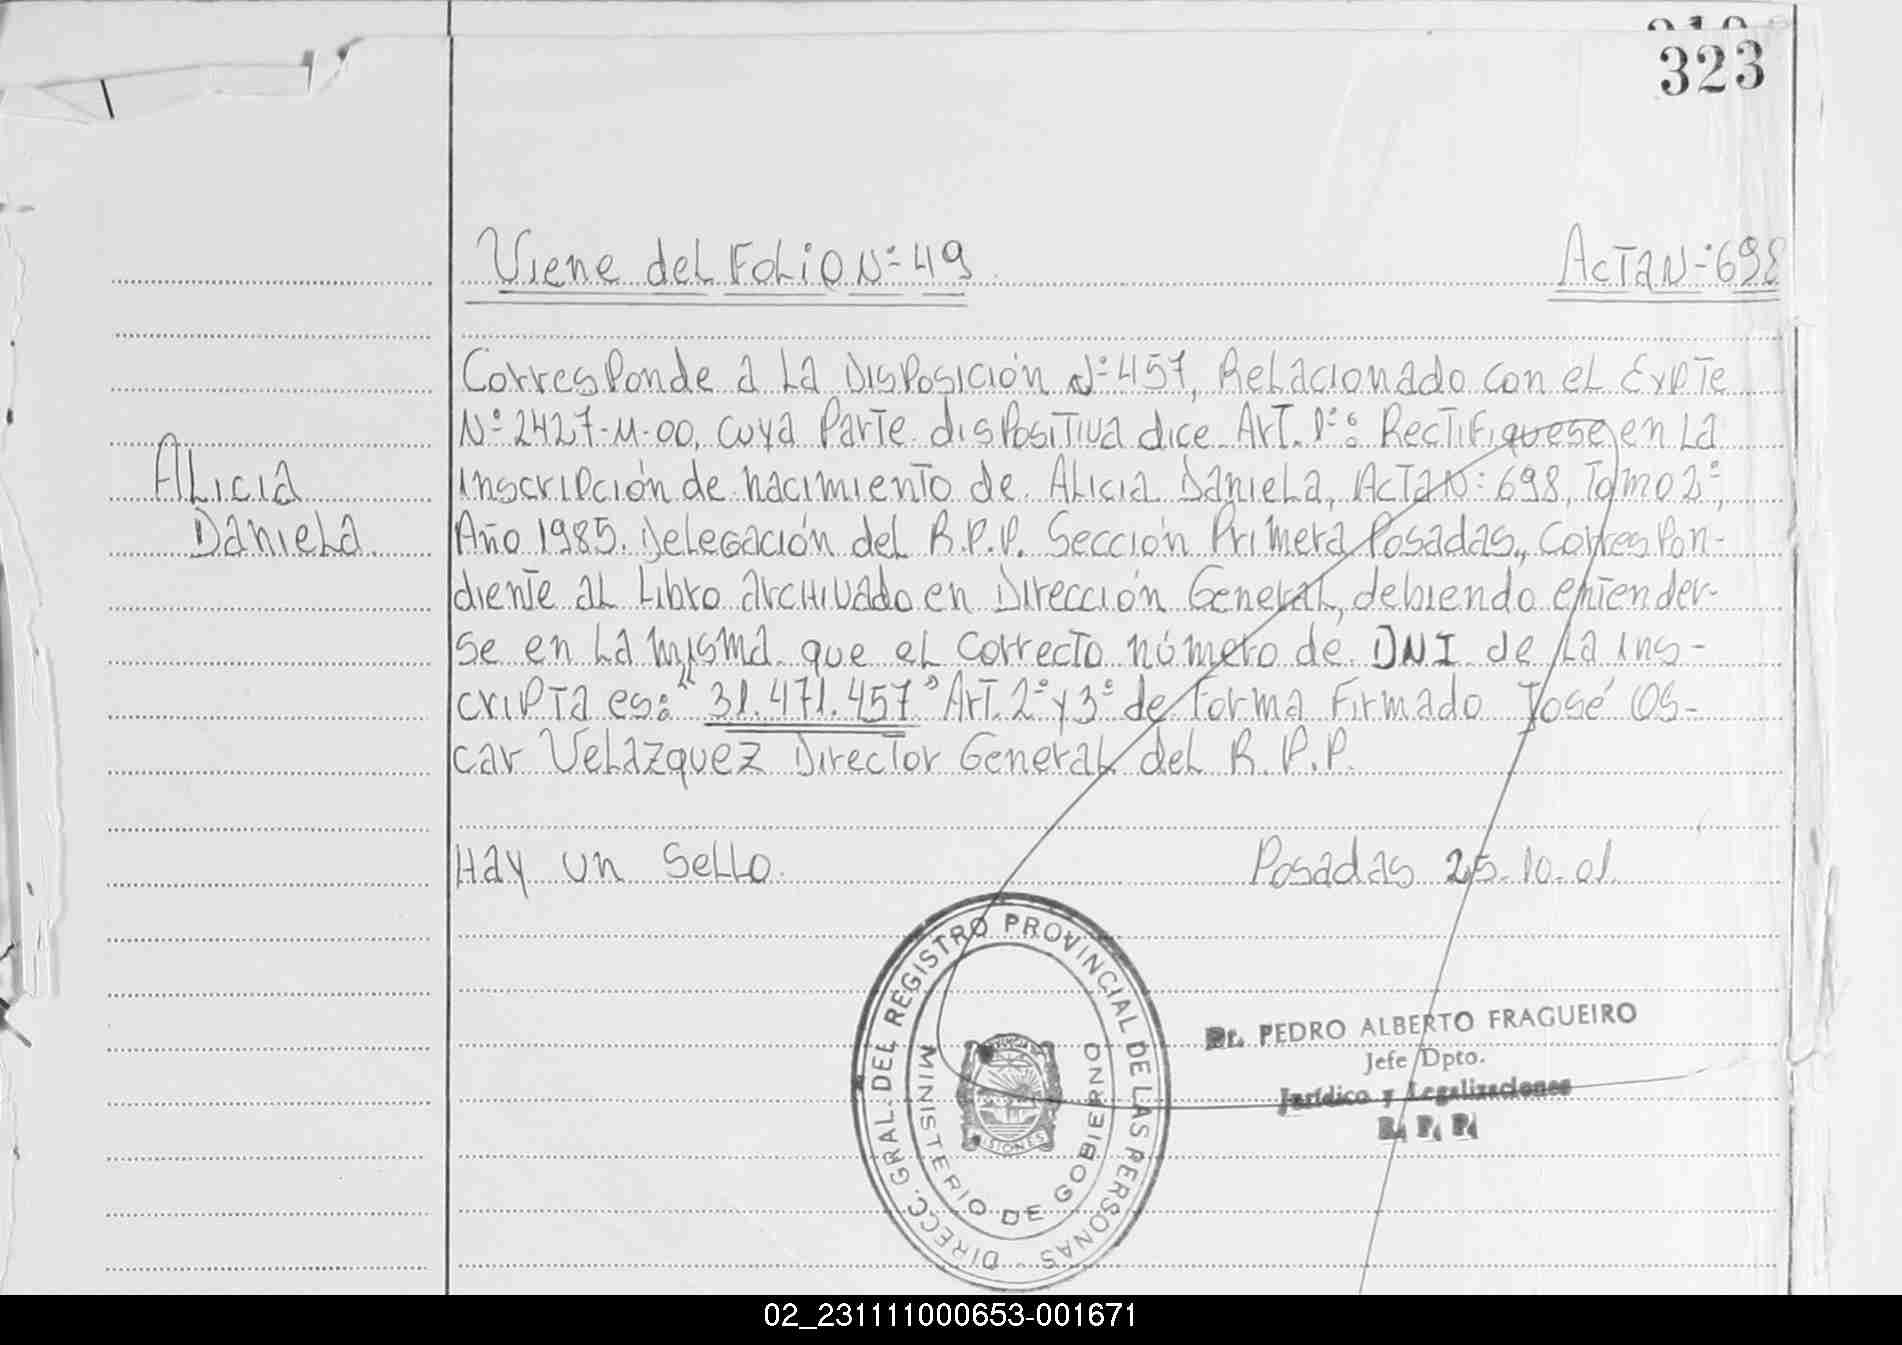 323
Viene del Folio Nº 49
Acta Nº 698
Corresponde a la Disposición Nº 457, Relacionado con el Expte
Nº 2427-M-00, cuya Parte dispositiva dice Art. 1º: Rectifiquese en La
Inscripción de nacimiento de Alicia Daniela, Acta Nº 698, Tomo 2º,
Año 1985. Delegación del R.P.P. Sección Primera Posadas, Correspon-
diente al Libro archivado en Dirección General, debiendo entender-
se en La misma que el correcto número de DNI de la ins-
cripta es: "31.471.457" Art. 2º y 3º de Forma Firmado José Os-
car Velazquez Director General del R.P.P.
Alicia
Daniela.
Hay un Sello.
Posadas 25.10.01.
DIRECC. GRAL. DEL REGISTRO PROVINCIAL DE LAS PERSONAS
MINISTERIO DE GOBIERNO
Dr. PEDRO ALBERTO FRAGUEIRO
Jefe Dpto.
Jurídico y Legalizaciones
R. P. P.
02_231111000653-001671